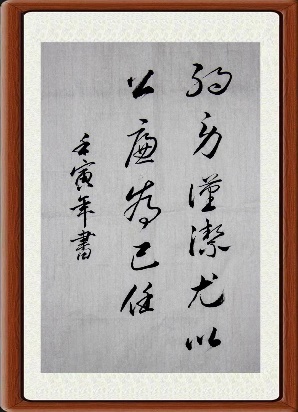 約身謹潔尤以
公廉為己任
壬寅年書